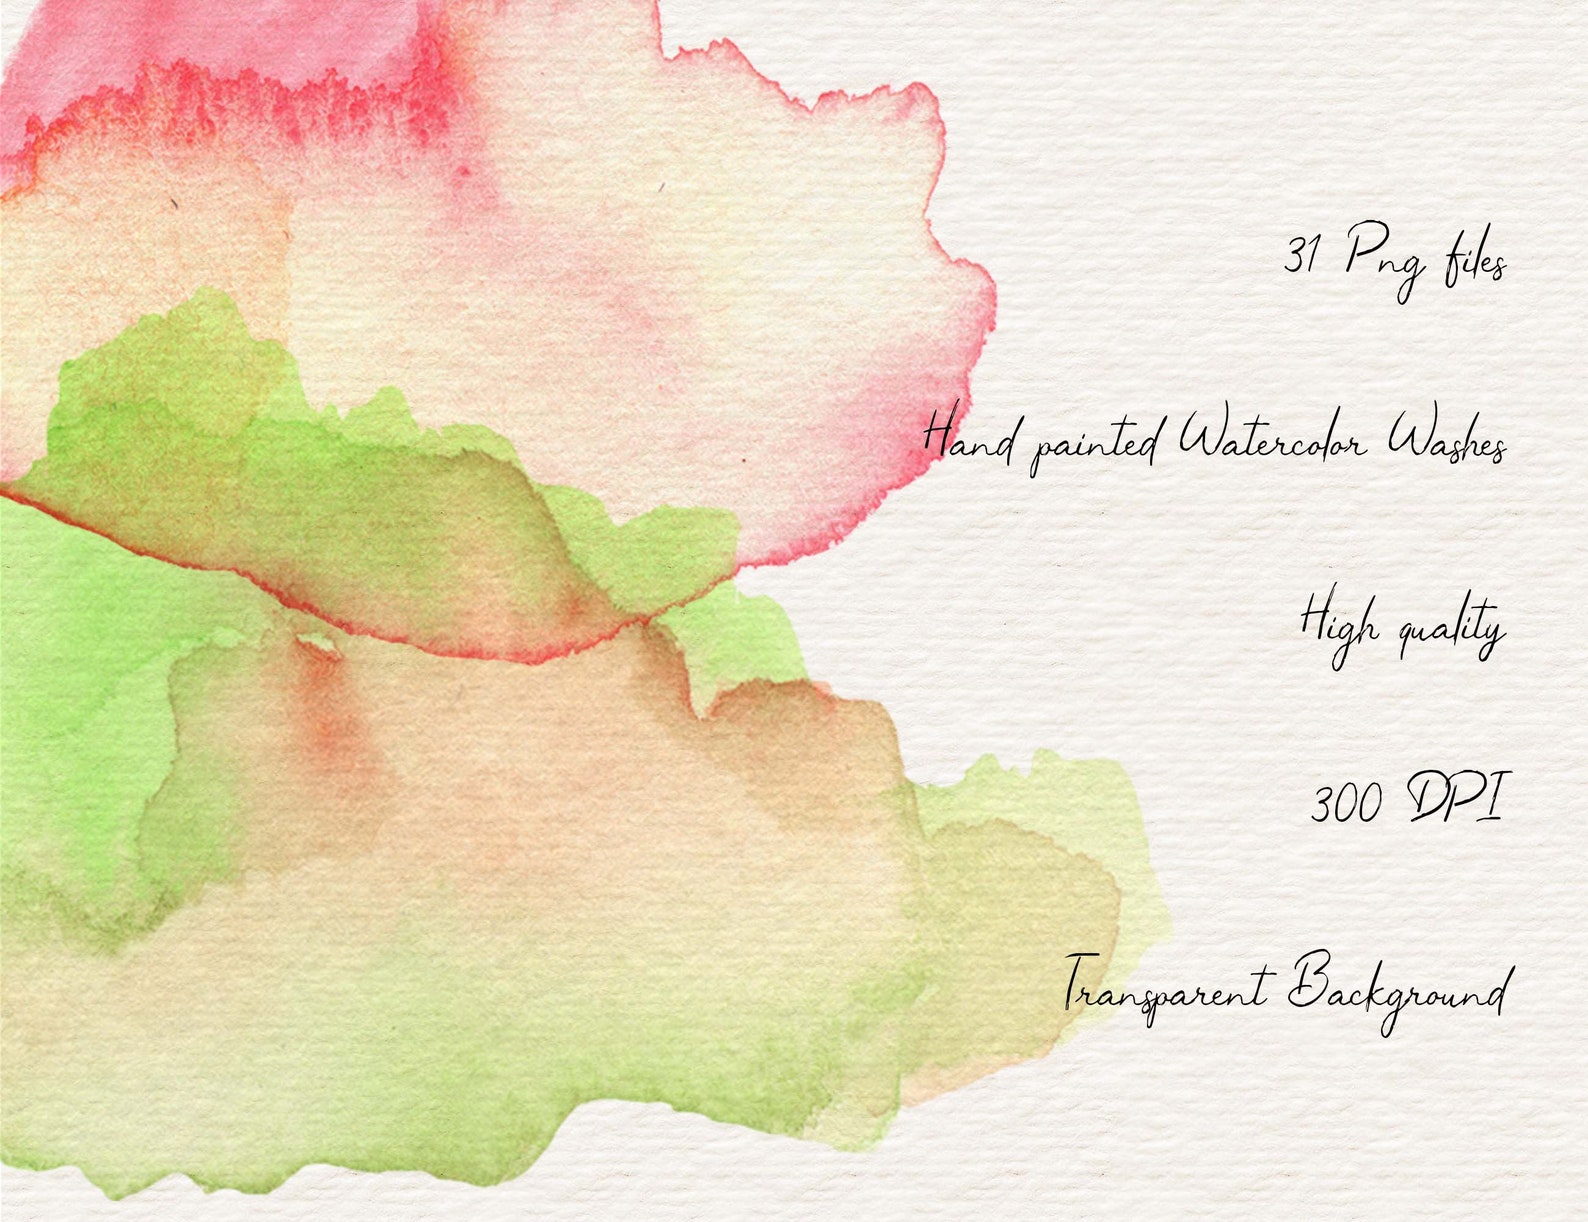 31 Png files
Hand painted Watercolor Washes
High quality
300 DPI
Transparent Background